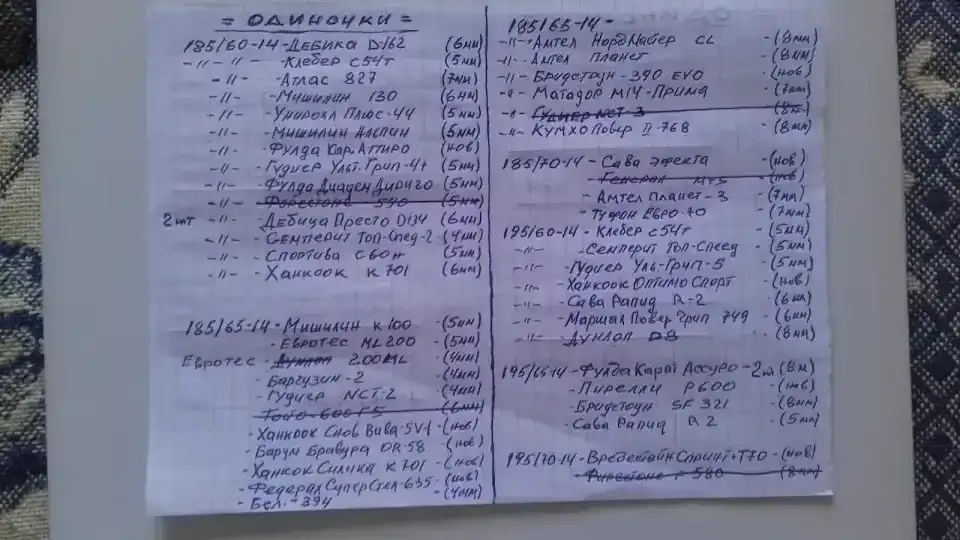 = ОДИНОЧКИ =
185/60-14-ДЕБИКА D162 (6мм)
-11- -11- -Клебер с54т (5мм)
-11- -Атлас 827 (7мм)
-11- -Мишилин 130 (6мм)
-11- -Унироял Плюс-44 (5мм)
-11- -Мишилин Альпин (5мм)
-11- -Фулда Кар.Аттиро (нов)
-11- -Гудиер Ульт.Грип-4+ (5мм)
-11- -Фулда Диадем Дириго (5мм)
-11- -Форестоне 590 (5мм)
2шт -11- -Дебица Престо D134 (6мм)
-11- -Семперит Топ-Спед-2 (4мм)
-11- -Спортива с60н (5мм)
-11- -Ханкоок к701 (6мм)
185/65-14-Мишилин к100 -(5мм)
-Евротес ML200 -(5мм)
Евротес -Дунлоп 200ML -(4мм)
-Баргузин-2 -(4мм)
-Гудиер NCT-2 -(4мм)
-Тойо-600F5 (6мм)
-Ханкоок Снов Вива-SV-1 -(нов)
-Барум Бравура OR-58 -(нов)
-Ханкок Силика к701 -(нов)
-Федерал Супер Стил-635 -(нов)
-Бел.-394 -(4мм)
185/65-14-
-11- -Амтел НордМастер CL -(8мм)
-11- -Амтел планет -(8мм)
-11- -Бридстоун-390 EVO -(нов)
-11- -Матадор М14-Прима -(7мм)
-11- -Гудиер NCT-3 (8м)
-11- -Кумхо Повер II-768 -(8мм)
185/70-14-Сава Эфекта -(нов)
-Генерал МТS -(нов)
-Амтел планет-3 -(7мм)
-Туфон Евро-70 -(7мм)
195/60-14-Клебер с54т -(5мм)
-11- -Семперит Топ-Спеед -(5мм)
-11- -Гудиер Уль-Грип-5 -(5мм)
-11- -Ханкоок Оптимо Спорт -(нов)
-11- -Сава Рапид R-2 -(6мм)
-11- -Маршал Повер Грип 749 -(6мм)
-11- -Дунлоп D8 -(8мм)
195/65-14-Фулда Карат Ассуро-2шт (8м)
-Пирелли Р600 -(нов)
-Бридстоун SF 321 -(8мм)
-Сава Рапид R2 -(5мм)
195/70-14-Вредестайн Спринт+Т70-(нов)
-Фирестоне F580 (8мм)